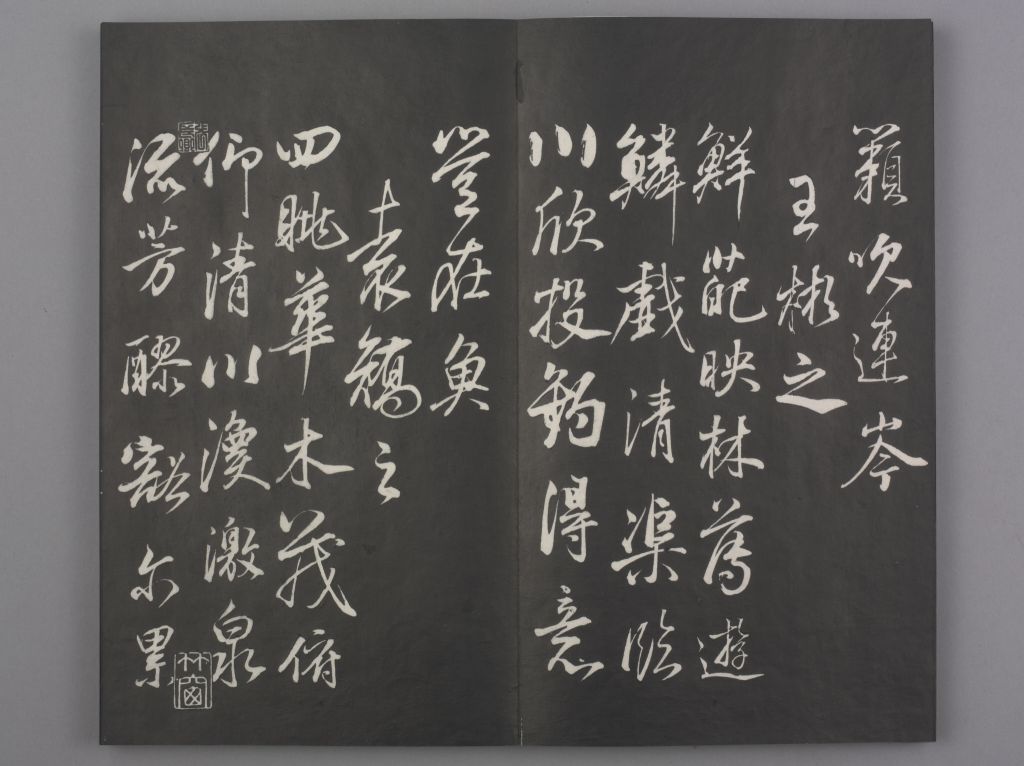 籟吹連岑
王彬之
鮮葩映林薄遊
鱗戲清渠臨
川欣投釣得意
豈在魚
袁矯之
四眺華木茂俯
仰清川渙激泉
流芳醪豁尓累